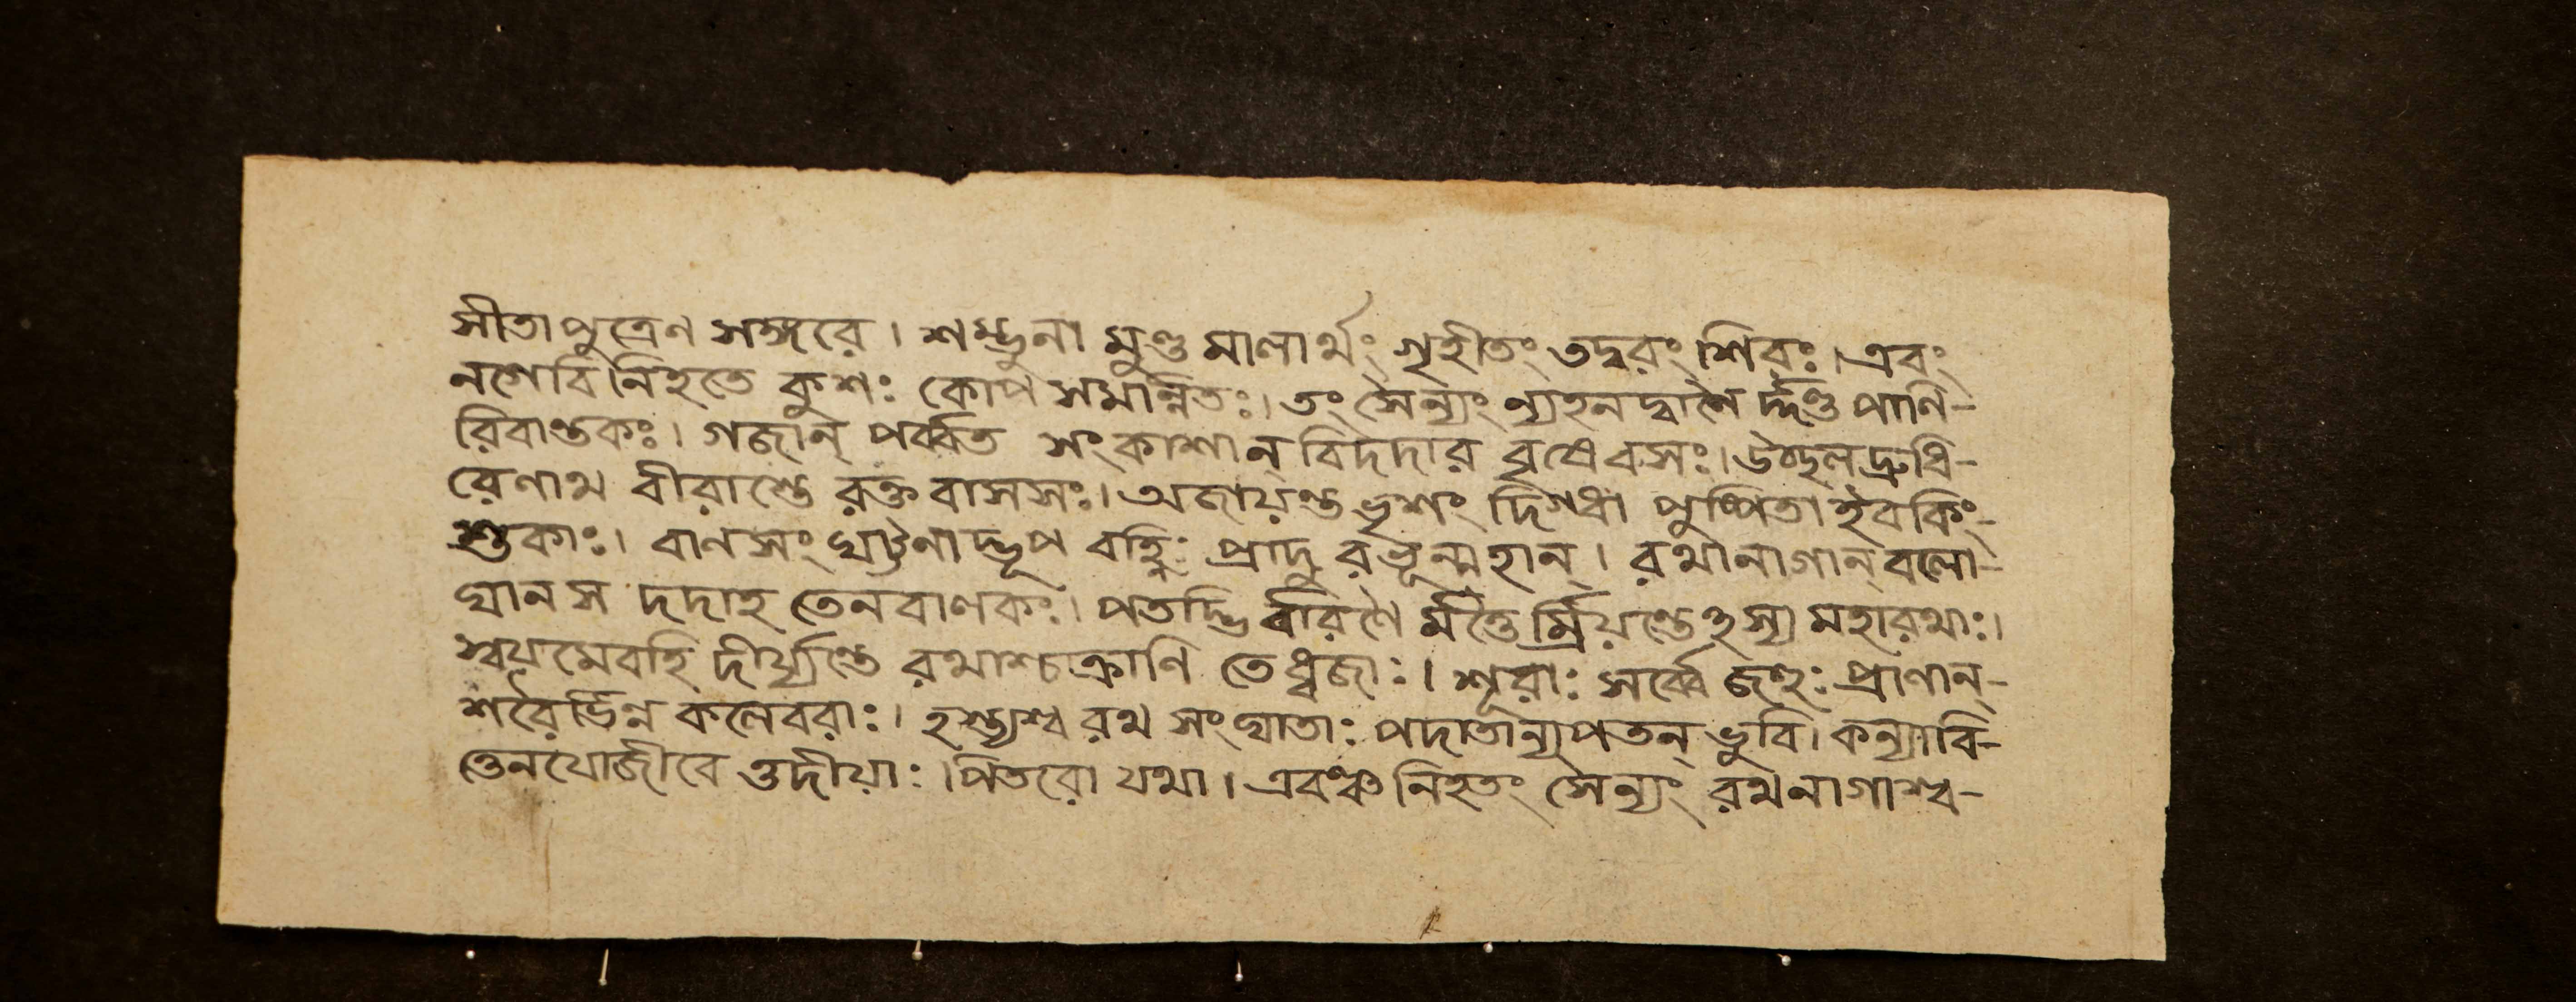 সীতাপুত্রেণ সঙ্গরে। শম্ভুনা মুণ্ডমালার্থং গৃহীতং তদ্বরং শিরঃ। এবং
নগেবিনিহতে কুশঃ কোপসমান্নিতঃ। তং সৈন্যং ন্যহনদ্বাণৈর্দ্দণ্ডপাণি-
রিবান্তকঃ। গজান্ পর্ব্বত সংকাশান্ বিদদার বৃষেবসঃ। উচ্ছলদ্রুধি-
রেণাথ বীরাস্তে রক্তবাসসঃ। অজায়ন্ত ভৃশং দিগ্ধা পুষ্পিতা ইব কিং-
শুকাঃ। বানসংঘট্টনাদ্ভূপ বহ্নিঃ প্রাদুরভূন্মহান্। রথানাগান্ বলো-
ঘান স দদাহ তেন বাণকঃ। পতদ্ভির্বারণৈর্মত্তৈর্ম্রিয়ন্তেস্ম মহারথাঃ।
স্বয়মেবহি দীর্য্যন্তে রথাশ্চক্রাণি তে ধ্বজাঃ। শূরাঃ সর্ব্বে জহুঃ প্রাণান্-
শরৈর্ভিন্ন কলেবরাঃ। হস্ত্যশ্ব রথ সংঘাতাঃ পদাতান্যপতন্ ভুবি। কন্যাবি-
ত্তেনযোজীবে ত্তদীয়াঃ। পিতরো যথা। এবঞ্চ নিহতং সৈন্যং রথনাগাশ্ব-